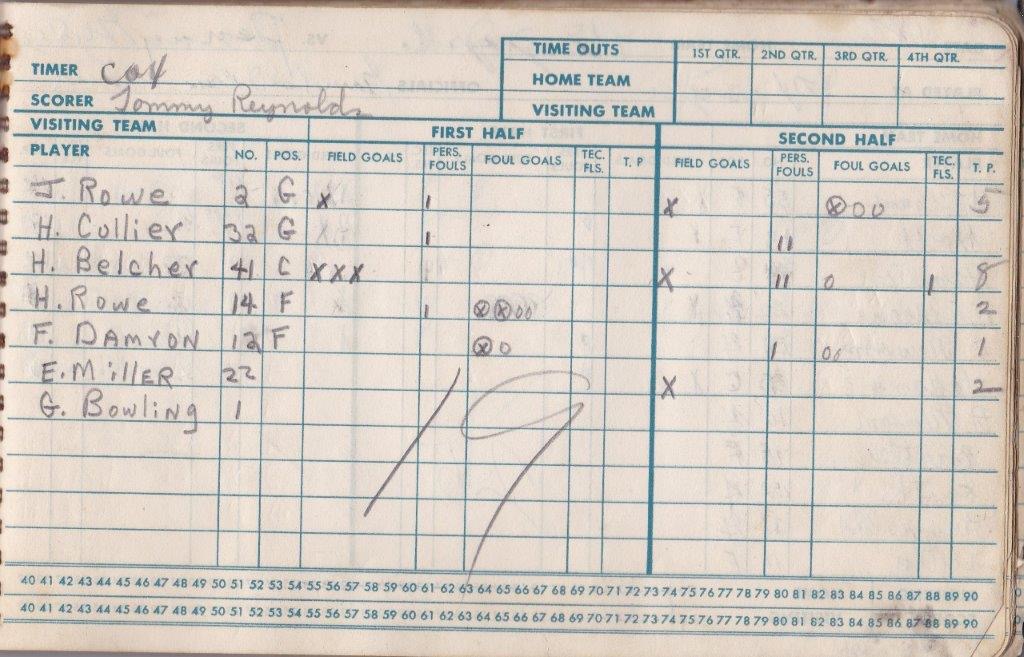 TIME OUTS 1ST QTR. 2ND QTR. 3RD QTR. 4TH QTR.
HOME TEAM
VISITING TEAM
TIMER Cox
SCORER Tommy Reynolds
VISITING TEAM FIRST HALF SECOND HALF
PLAYER NO. POS. FIELD GOALS PERS. FOULS FOUL GOALS TEC. FLS. T. P FIELD GOALS PERS. FOULS FOUL GOALS TEC. FLS. T. P.
J. Rowe 2 G X I X ⓧ00 5
H. Collier 32 G I II
H. Belcher 41 C XXX X II 0 I 8
H. Rowe 14 F I ⓧⓧ00 2
F. DAMRON 12 F ⓧ0 I 00 1
E. MillER 22 X 2
G. Bowling 1
19
40 41 42 43 44 45 46 47 48 49 50 51 52 53 54 55 56 57 58 59 60 61 62 63 64 65 66 67 68 69 70 71 72 73 74 75 76 77 78 79 80 81 82 83 84 85 86 87 88 89 90
40 41 42 43 44 45 46 47 48 49 50 51 52 53 54 55 56 57 58 59 60 61 62 63 64 65 66 67 68 69 70 71 72 73 74 75 76 77 78 79 80 81 82 83 84 85 86 87 88 89 90